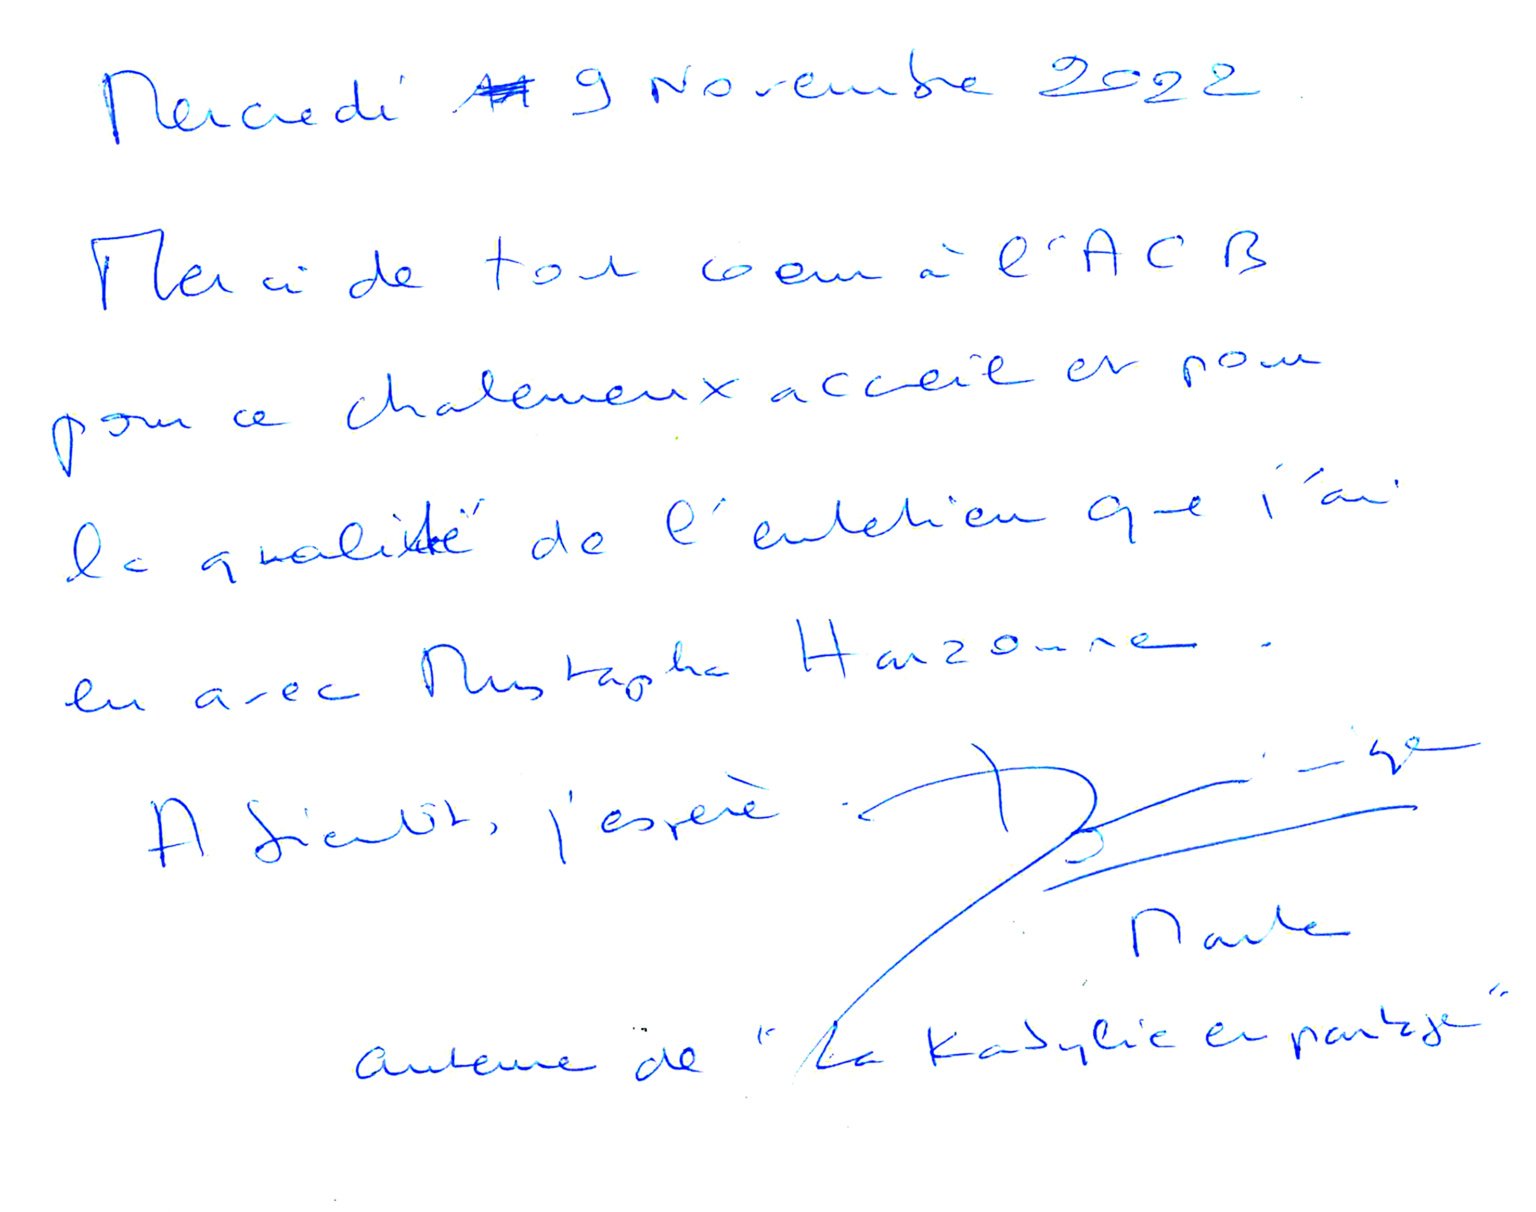 Mercredi 9 Novembre 2022
Merci de tout coeur à l'ACB
pour ce chaleureux accueil et pour
la qualité de l'entretien que j'ai
eu avec Mustapha Harzoune.
A bientôt, j'espère.
Dominique
auteure de "La Kabylie en partage"